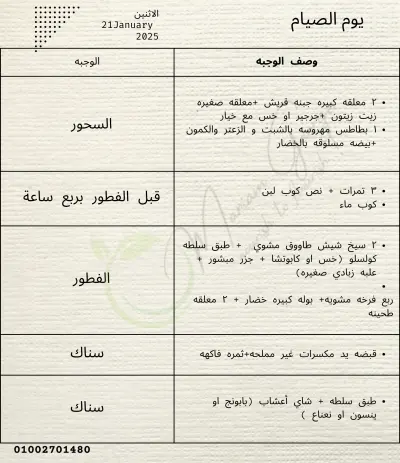 يوم الصيام
الاثنين
21January
2025
وصف الوجبه
الوجبه
٢ معلقه كبيره جبنه قريش +معلقه صغيره
زيت زيتون +جرجير او خس مع خيار
١ بطاطس مهروسه بالشبت و الزعتر والكمون
+بيضه مسلوقه بالخضار
السحور
٣ تمرات + نص كوب لبن
كوب ماء
قبل الفطور بربع ساعة
٢ سيخ شيش طاووق مشوي + طبق سلطه
كولسلو (خس او كابوتشا + جزر مبشور +
علبه زبادي صغيره)
ربع فرخه مشويه+ بوله كبيره خضار + ٢ معلقه
طحينه
الفطور
قبضه يد مكسرات غير مملحه+ثمره فاكهه
سناك
طبق سلطه + شاي أعشاب (بابونج او
ينسون او نعناع )
سناك
01002701480